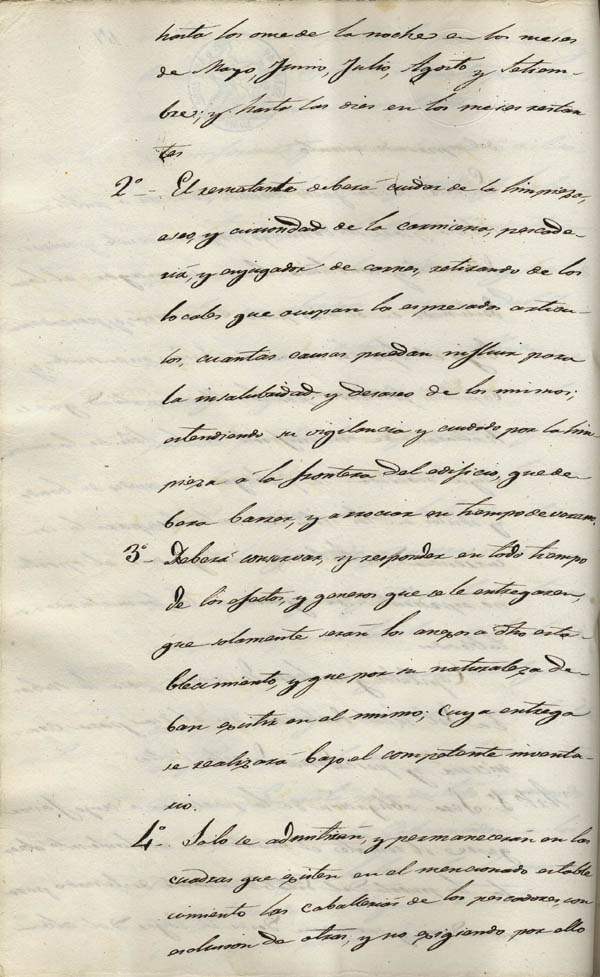 hasta las once de la noche en los meses
de Mayo, Junio, Julio, Agosto y Setiem-
bre; y hasta las dies en los meses restan
tes
2º — El rematante deberá cuidar de la limpieza,
aseo, y curiosidad de la carniceria, pescade-
ria, y enjugador de carnes, retirando de los
locales que ocupan los espresados articu-
los, cuantas causas puedan influir para
la insalubridad, y desaseo de los mismos;
estendiendo su vigilancia y cuidado por la lim
pieza a la frontera del edificio, que de-
bera barrer, y arrociar en tiempo de verano.
3º — Deberá conservar, y responder en todo tiempo
de los efectos, y generos que se le entregaren,
que solamente serán los anexos a dho esta-
blecimiento, y que por su naturaleza de-
ban existir en el mismo; cuya entrega
se realizará bajo el competente inventa-
rio.
4º — Solo se admitirán, y permanecerán en las
cuadras que existen en el mencionado estable
cimiento las caballerias de los pescadores, con
esclusion de otras, y no exigiendo por ello